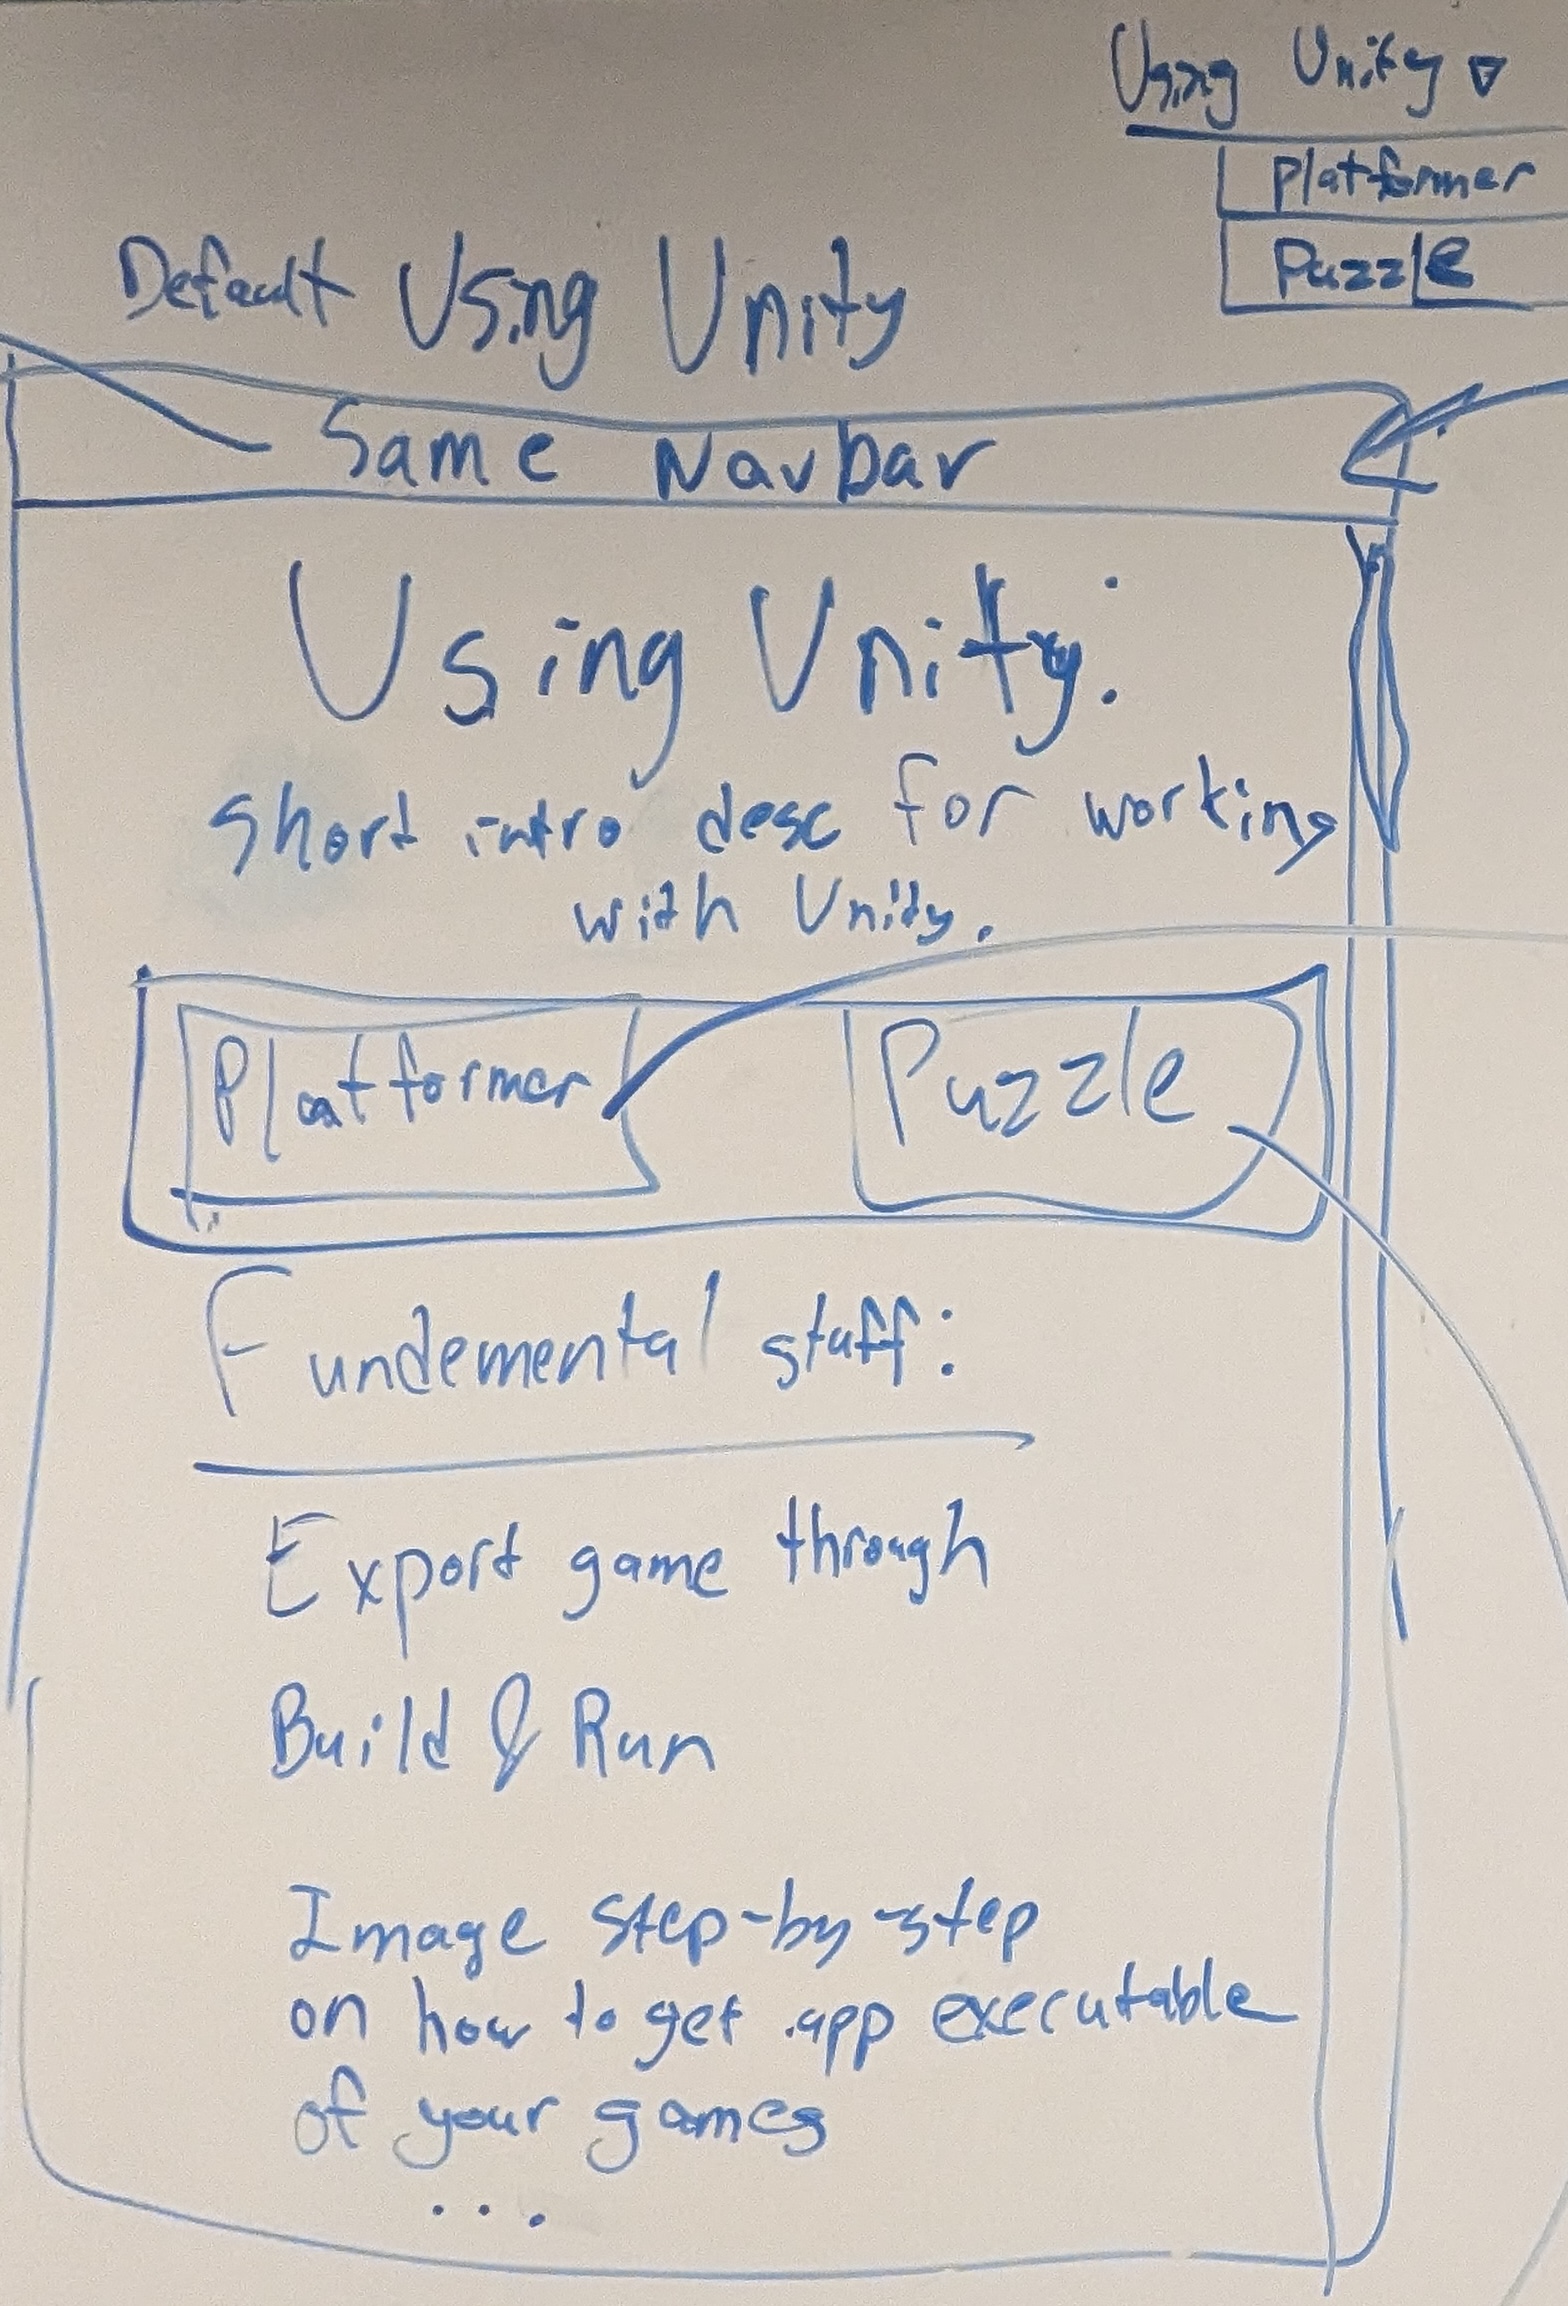 Using Unity ▽
Platformer
Puzzle
Default Using Unity
Same Navbar
Using Unity:
Short intro desc for working
with Unity.
Platformer Puzzle
Fundemental stuff:
Export game through
Build & Run
Image step-by-step
on how to get .app executable
of your games
...